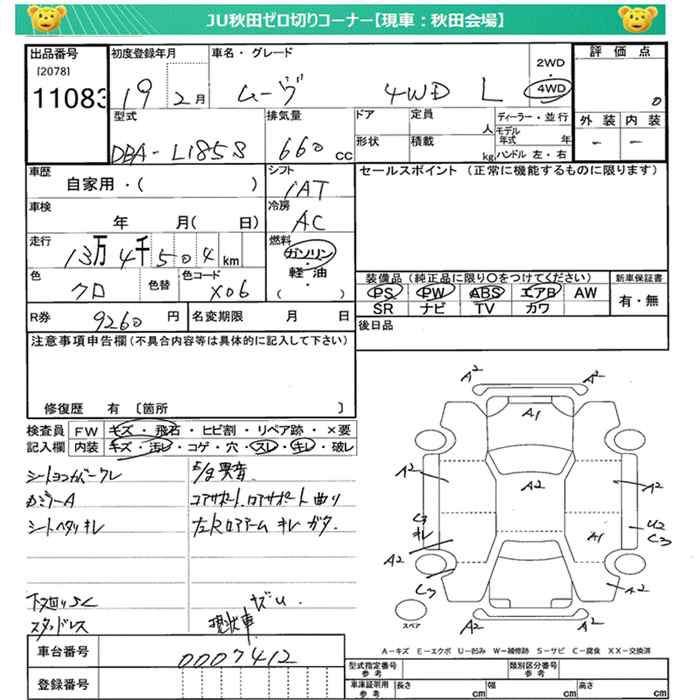 JU秋田ゼロ切りコーナー【現車：秋田会場】
出品番号 初度登録年月 車名・グレード 2WD 評価点
[2078] 4WD
11083 19 2月 ムーヴ 4WD L 0
型式 排気量 ドア 定員 人 ディーラー・並行 外装 内装
DBA-L185S 660 cc 形状 積載 kg モデル年式 年 ハンドル 左・右 - -
車歴 シフト セールスポイント (正常に機能するものに限ります)
自家用・( ) IAT
車検 冷房
年 月( 日) AC
走行 燃料
13万4千504km ガソリン
色 色替 色コード 軽油
クロ X06 ( )
装備品 (純正品に限り〇をつけてください) 新車保証書
PS PW ABS エアB AW 有・無
SR ナビ TV カワ
R券 9260 円 名変期限 月 日 後日品
注意事項申告欄 (不具合内容等は具体的に記入して下さい)
修復歴 有 〔箇所 〕
検査員 FW キズ・飛石・ヒビ割・リペア跡・×要
記入欄 内装 キズ・汚レ・コゲ・穴・スレ・キレ・破レ
E/g異音
コアサポート、ロアサポート曲り
シートヘタリキレ 左Rロアアームキレガタ
下廻りSC
スタッドレス 現状車
A2 A2
A1
A2 A2 A2
C3 キレ A1 U2 C3
A2
C3 A2
スペア A2 A2
A－キズ E－エクボ U－凹み W－補修跡 S－サビ C－腐食 XX－交換済
車台番号 0007412
登録番号
型式指定番号 参考 類別区分番号 参考
車庫証明用 参考 長さ cm 幅 cm 高さ cm